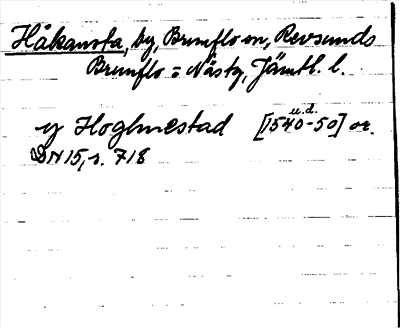 Håkansta, by, Brunflo sn, Revsunds
Brunflo o Näs tg, Jämtl. l.
u.d.
y Hoghnestad [1540-50] or.
DN 15, s. 718